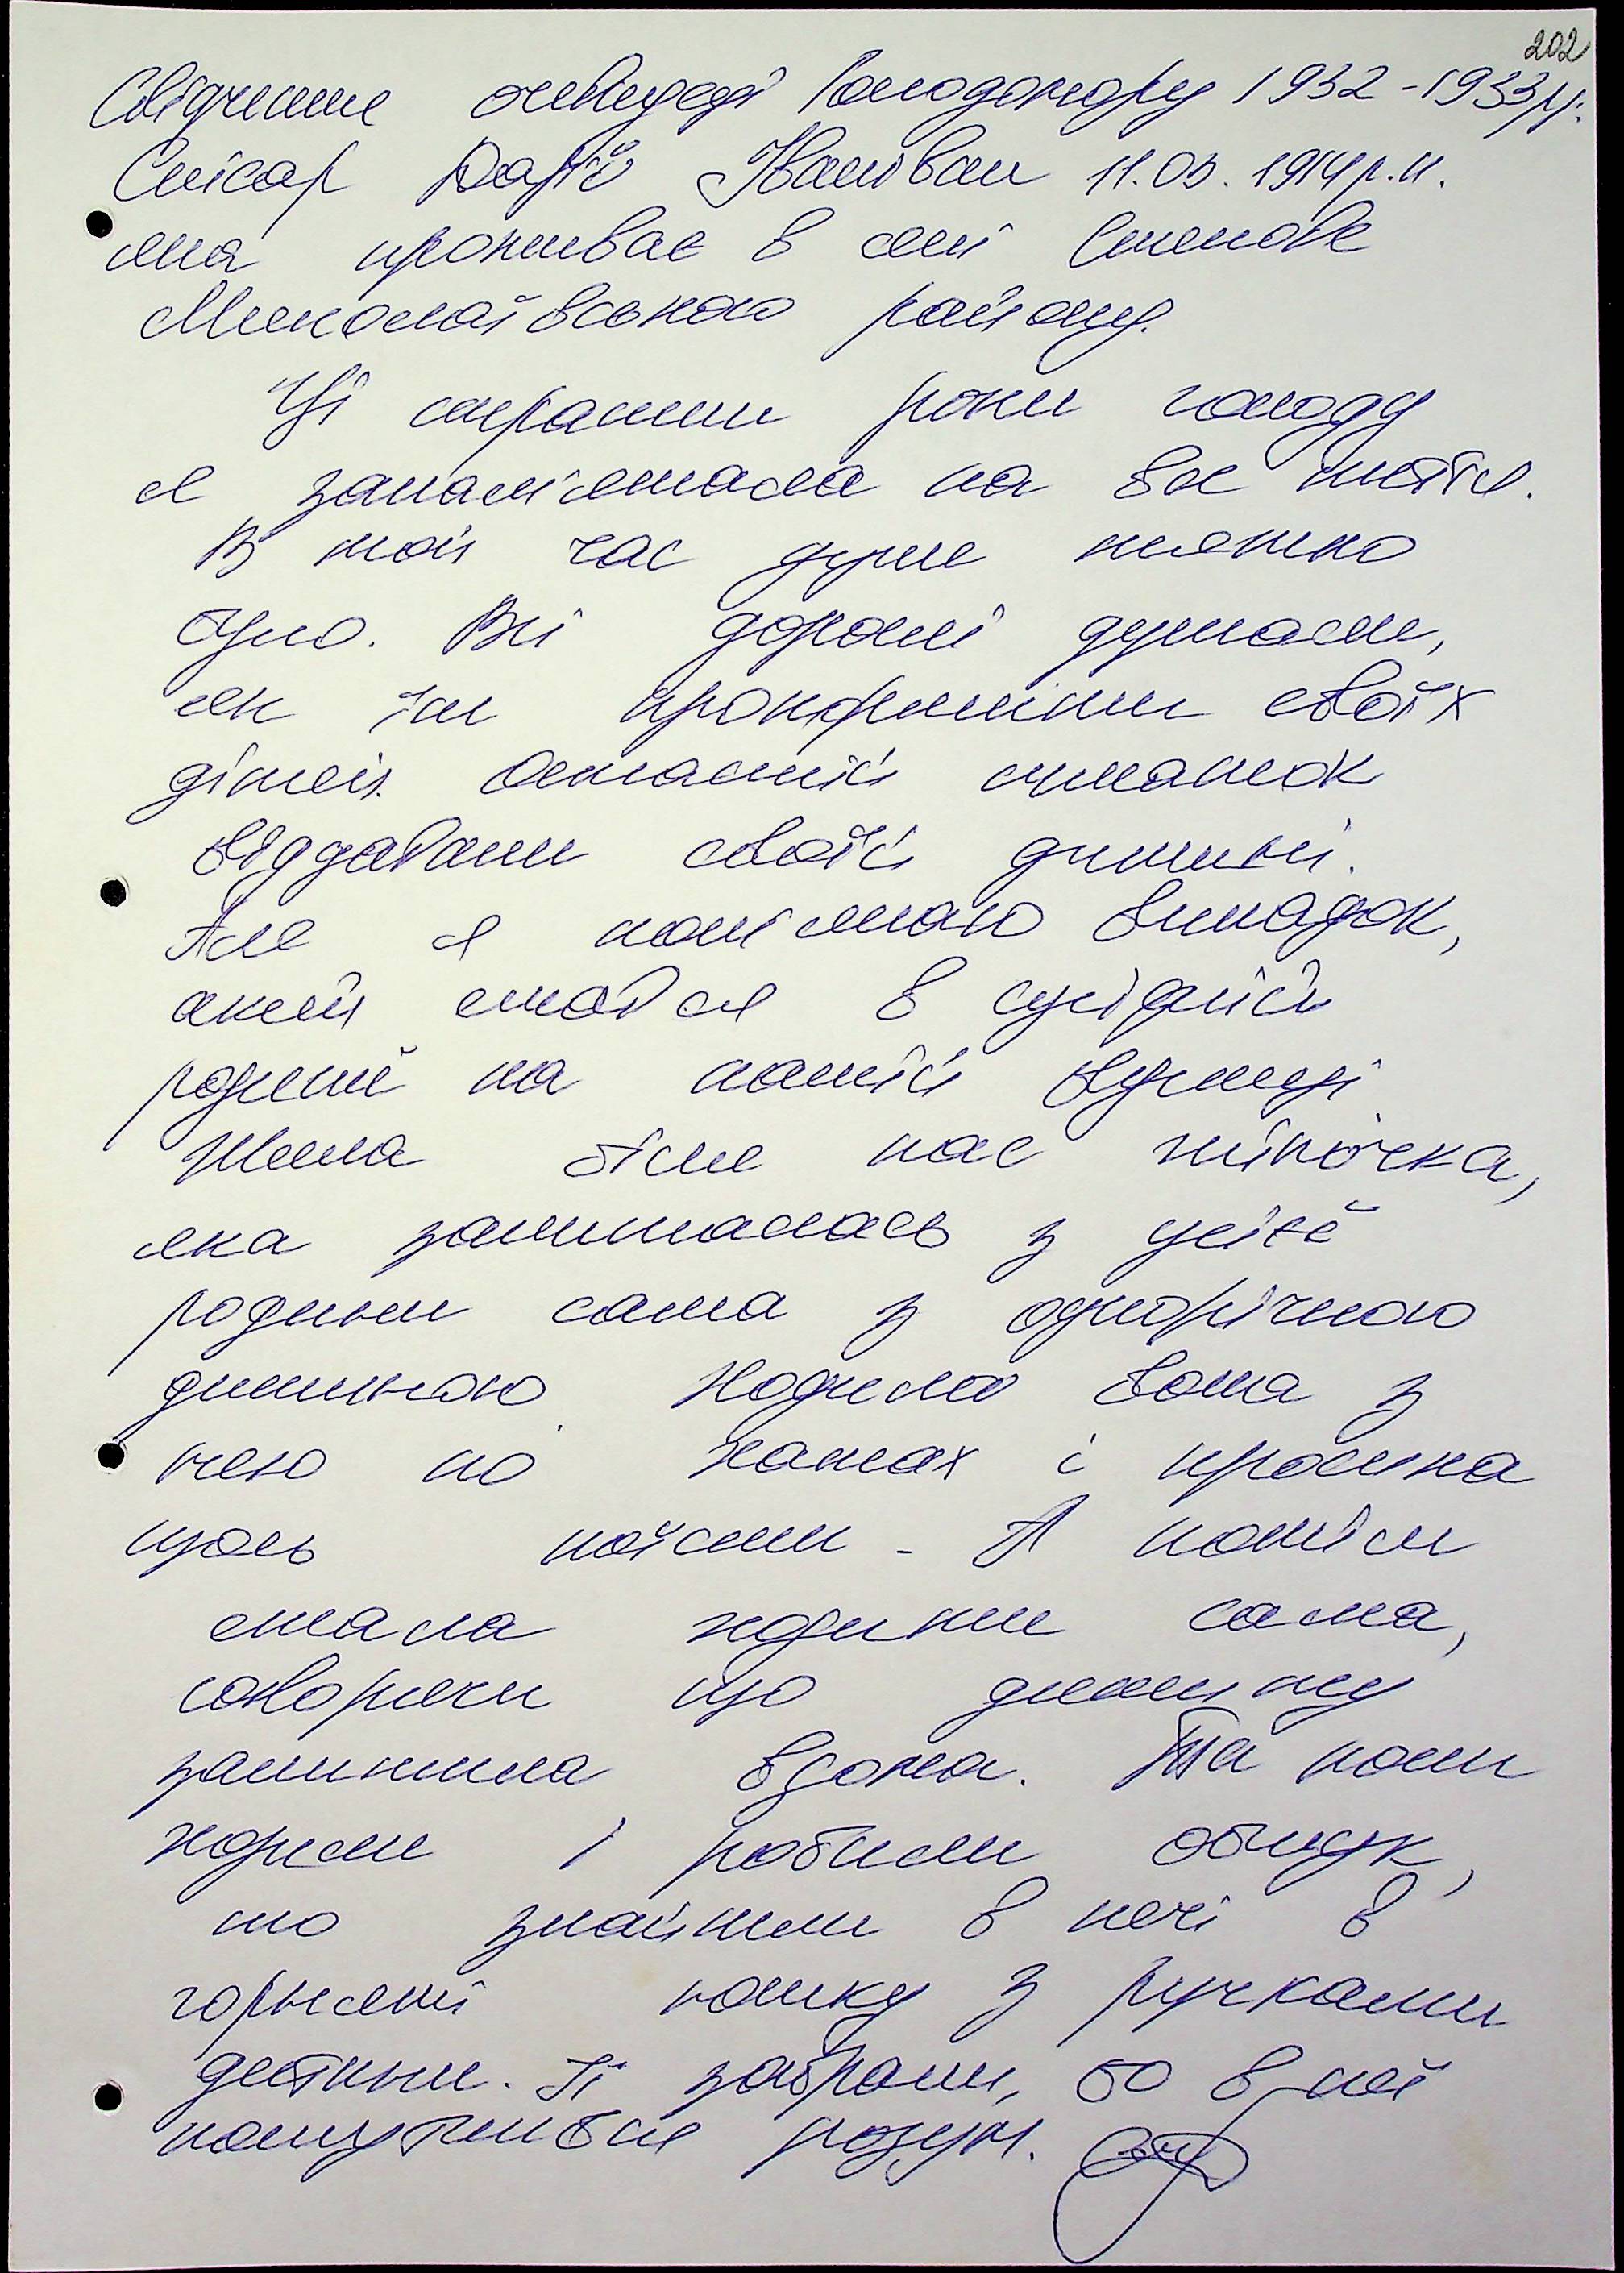 202
Свідчення очевидці Голодомору 1932-1933рр.
Слісар Дарії Іванівни 11.03.1914р.н.
яка проживає в селі Степове
Миколаївського району.
Ці страшні роки голоду
я запам'ятала на все життя.
В той час дуже тяжко
було. Всі дорослі думали,
як їм прокормити своїх
дітей. Останній шматок
віддавали своїй дитині.
Але я пам'ятаю випадок,
який стався в сусідній
родині на нашій вулиці
Жила біля нас жіночка,
яка залишилась з усієї
родини сама з однорічною
дитиною. Ходила вона з
нею по хатах і просила
щось поїсти. А потім
стала ходити сама,
говорячи що дитину
залишила вдома. Та коли
ходили і робили обшук,
то знайшли в печі в
горнятці юшку з ручками
дитини. Її забрали, бо в неї
помутився розум.